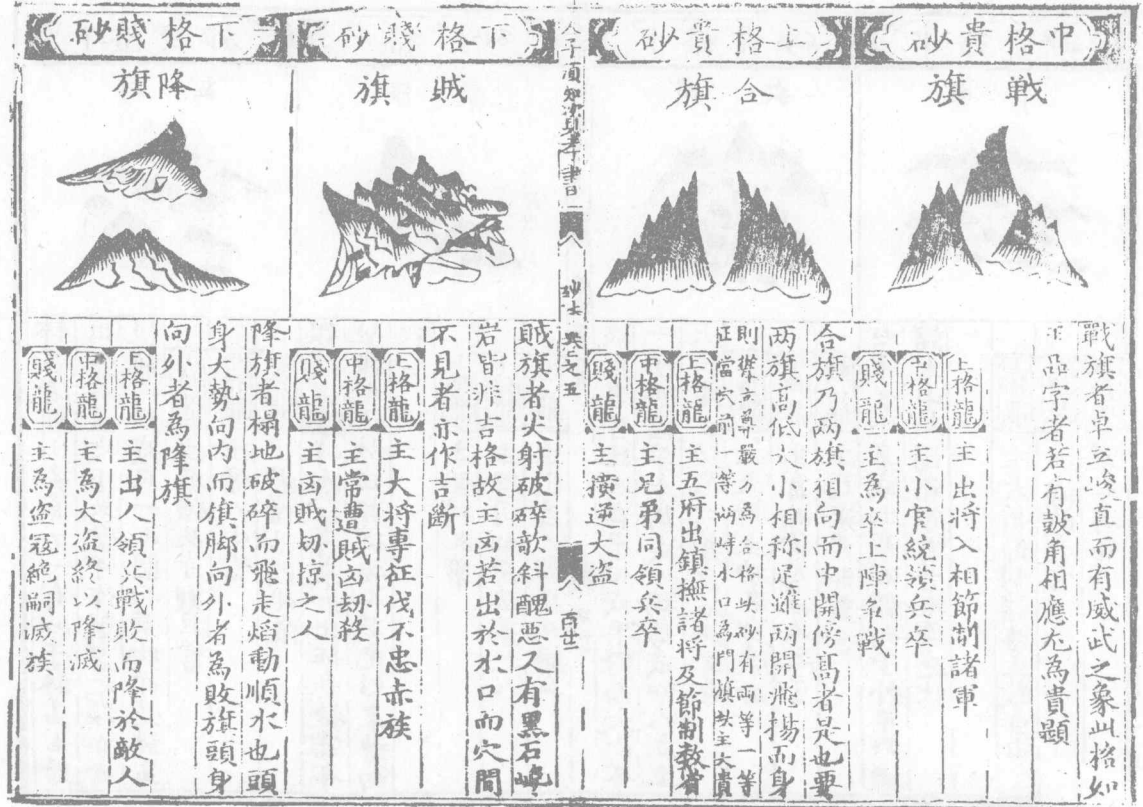 中格貴砂
戰旗
戰旗者卓立峻直而有威武之象此格如
品字者若有皷角相應尤為貴顯
上格龍 主出將入相節制諸軍
中格龍 主小官統領兵卒
賤龍 主為卒上陣爭戰
上格貴砂
合旗
合旗乃两旗相向而中開傍高者是也要
两旗高低大小相称足遜兩開飛揚而身
則 尊嚴方為合格此砂有两等一等
當穴前一等两峙水口為門 主大貴
上格龍 主五府出鎮撫諸將及節制数省
中格龍 主兄弟同領兵卒
賤龍 主攅逆大盗
人子須知資孝書
砂法 卷之五
下格賤砂
賊旗
賊旗者尖射破碎欹斜醜惡又有黑石巉
岩皆非吉格故主凶若出於水口而穴間
不見者亦作吉斷
上格龍 主大将專征伐不忠赤族
中格龍 主常遭賊凶劫殺
賤龍 主凶賊刼掠之人
下格賤砂
降旗
降旗者榻地破碎而飛走焰動順水也頭
身大勢向内而旗脚向外者為敗旗頭身
向外者為降旗
上格龍 主出人領兵戰敗而降於敵人
中格龍 主為大盗終以降滅
賤龍 主為盗冦絶嗣滅族